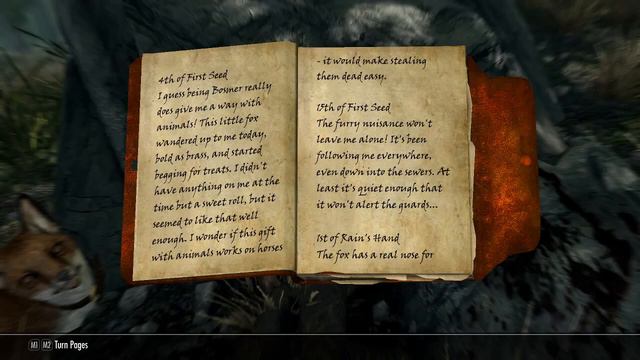 4th of First Seed
I guess being Bosmer really
does give me a way with
animals! This little fox
wandered up to me today,
bold as brass, and started
begging for treats. I didn't
have anything on me at the
time but a sweet roll, but it
seemed to like that well
enough. I wonder if this gift
with animals works on horses
- it would make stealing
them dead easy.
15th of First Seed
The furry nuisance won't
leave me alone! It's been
following me everywhere,
even down into the sewers. At
least it's quiet enough that
it won't alert the guards...
1st of Rain's Hand
The fox has a real nose for
M1 M2 Turn Pages